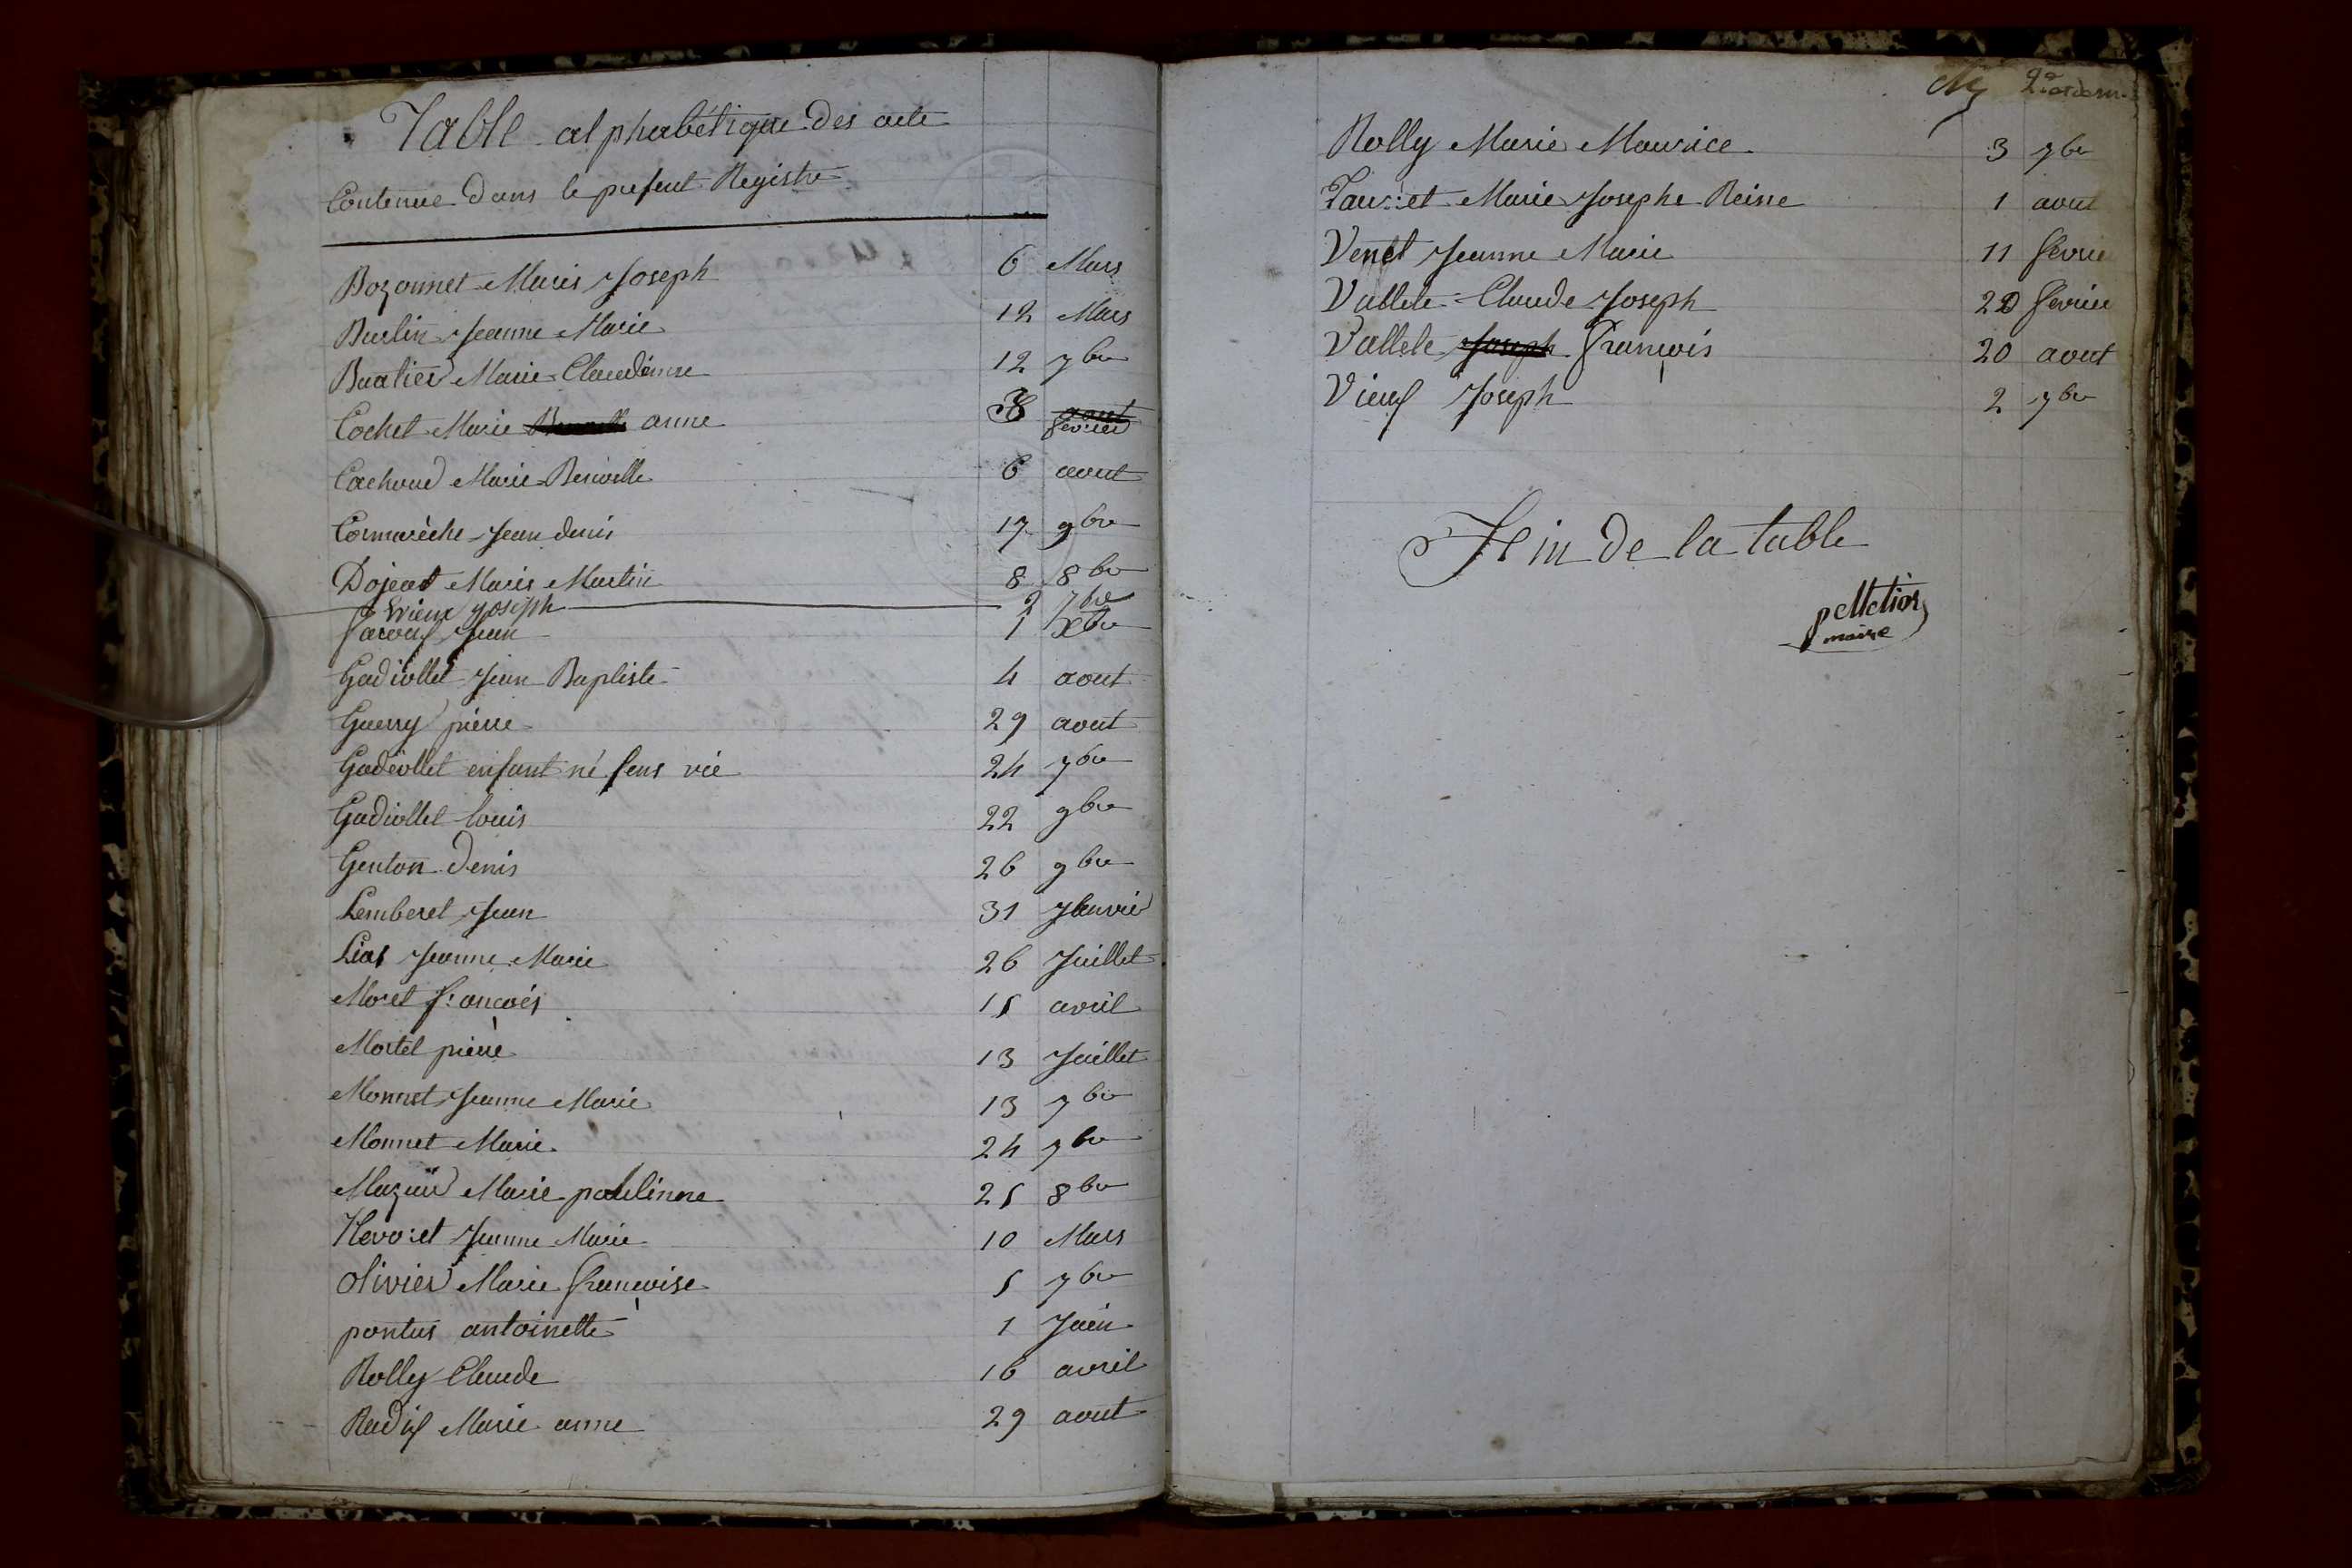 Table alphabétique des acte
Contenue dans le present Registre
Bozonnet Marie Joseph 6 Mars
Burlin Jeanne Marie 12 Mars
Buatier Marie Claudinne 12 7bre
Cochet Marie anne 8 aout fevrier
Cachoud Marie Benoitte 6 aout
Cormarèche Jean denis 17 9bre
Dojeat Marie Martin 8 8bre
Vrieux Joseph 2 7bre
Jean 1 Xbre
Gadiollet Jean Baptiste 4 aout
Guerry pierre 29 aout
Gadiollet enfant né sans vie 24 7bre
Gadiollet louis 22 9bre
Genton Denis 26 9bre
Lemberet Jean 31 Janvier
Lias Jeanne Marie 26 Juillet
Moret francois 15 avril
Mortel pierre 13 Juillet
Monnet Jeanne Marie 13 7bre
Monnet Marie 24 7bre
Mazuir Marie paulinne 25 8bre
Nevoret Jeanne Marie 10 Mars
Olivier Marie françoise 5 7bre
pontus antoinette 1 Juin
Rolly Claude 16 avril
Radix Marie anne 29 aout
Rolly Marie Maurice 3 7bre
Marie Josephe Reine 1 aout
Venet Jeanne Marie 11 fevrier
Vallete Claude Joseph 20 fevrier
Vallete Joseph François 20 aout
Vieux Joseph 2 7bre
Fin de la table
pelletier
maire